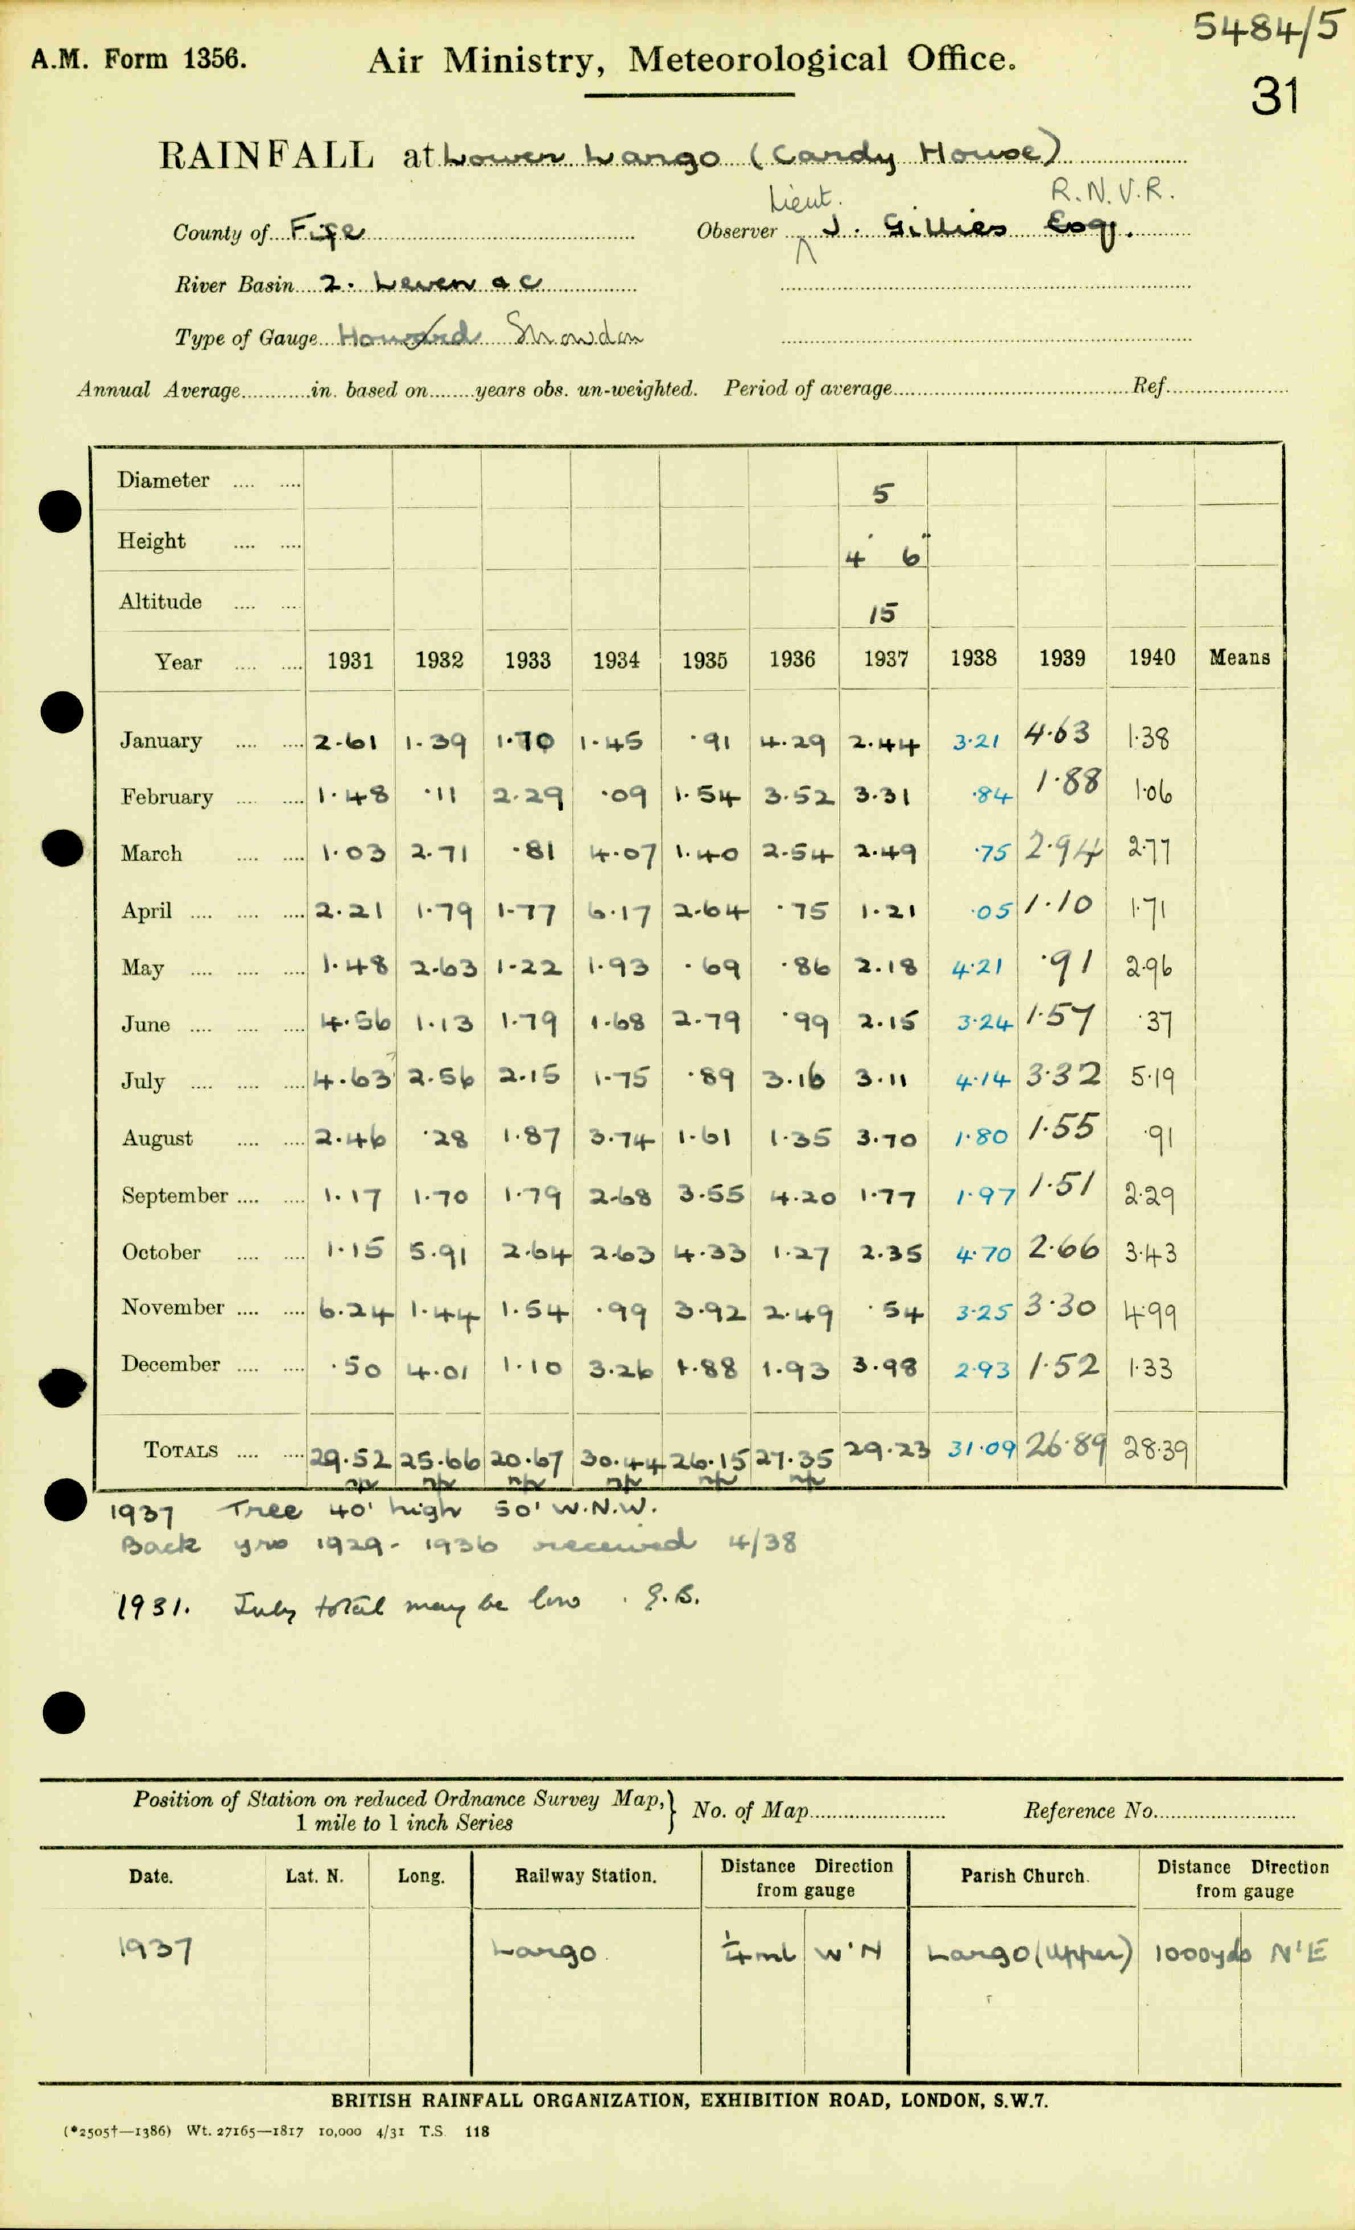 5484/5
A.M. Form 1356. Air Ministry, Meteorological Office.
31
RAINFALL at Lower Largo (Cardy House)
Lieut. R.N.V.R.
County of Fife Observer J. Gillies Esq.
River Basin 2. Leven &c
Type of Gauge Howard Snowdon
Annual Average in. based on years obs. un-weighted. Period of average Ref.
Diameter 5
Height 4' 6"
Altitude 15
Year 1931 1932 1933 1934 1935 1936 1937 1938 1939 1940 Means
January 2.61 1.39 1.70 1.45 .91 4.29 2.44 3.21 4.63 1.38
February 1.48 .11 2.29 .09 1.54 3.52 3.31 .84 1.88 1.06
March 1.03 2.71 .81 4.07 1.40 2.54 2.49 .75 2.94 2.77
April 2.21 1.79 1.77 6.17 2.64 .75 1.21 .05 1.10 1.71
May 1.48 2.63 1.22 1.93 .69 .86 2.18 4.21 .91 2.96
June 4.56 1.13 1.79 1.68 2.79 .99 2.15 3.24 1.57 .37
July 4.63 2.56 2.15 1.75 .89 3.16 3.11 4.14 3.32 5.19
August 2.46 .28 1.87 3.74 1.61 1.35 3.70 1.80 1.55 .91
September 1.17 1.70 1.79 2.68 3.55 4.20 1.77 1.97 1.51 2.29
October 1.15 5.91 2.64 2.63 4.33 1.27 2.35 4.70 2.66 3.43
November 6.24 1.44 1.54 .99 3.92 2.49 .54 3.25 3.30 4.99
December .50 4.01 1.10 3.26 1.88 1.93 3.98 2.93 1.52 1.33
TOTALS 29.52 25.66 20.67 30.44 26.15 27.35 29.23 31.09 26.89 28.39
1937 Tree 40' high 50' W.N.W.
Back yrs 1929-1936 received 4/38
1931. July total may be low. G.B.
Position of Station on reduced Ordnance Survey Map, } No. of Map Reference No.
1 mile to 1 inch Series
Date. Lat. N. Long. Railway Station. Distance Direction from gauge Parish Church. Distance Direction from gauge
1937 Largo ¼ ml W'N Largo (Upper) 1000yds N'E
BRITISH RAINFALL ORGANIZATION, EXHIBITION ROAD, LONDON, S.W.7.
(*2505†—1386) Wt. 27165—1817 10,000 4/31 T.S. 118